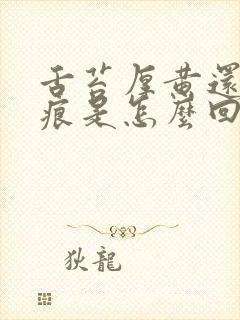 舌苔厚黄還
痕是怎麼回
狄龍